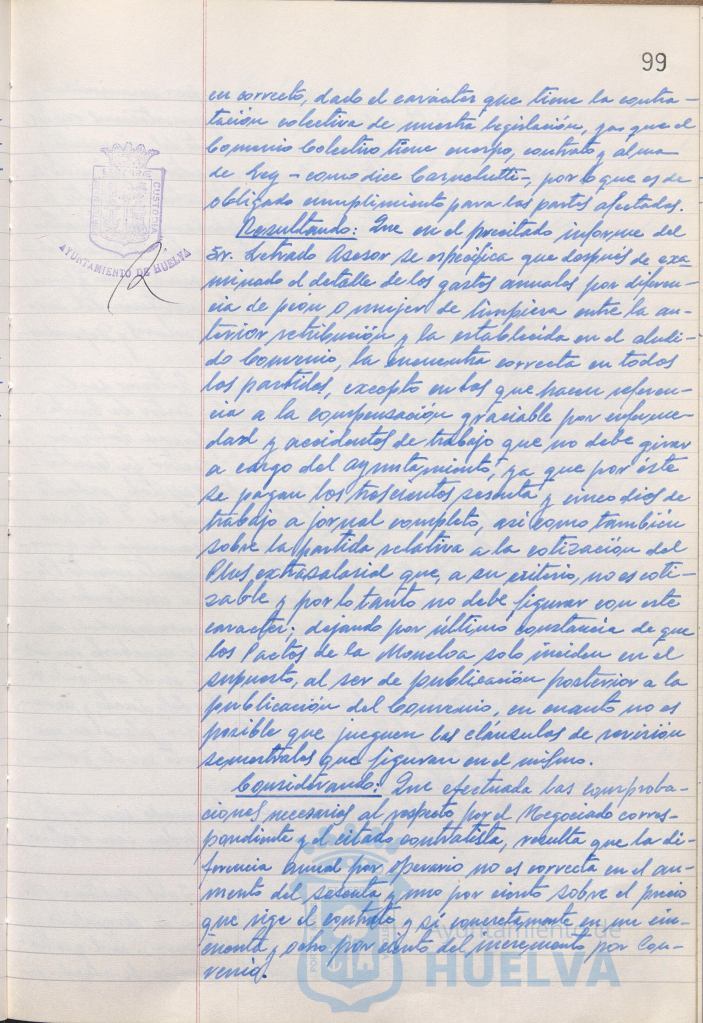 99
en correcto, dado el carácter que tiene la contra-
tación colectiva de nuestra legislación, ya que el
Convenio Colectivo tiene cuerpo, contrato y alma
de Ley - como dice Carnelutti -, por lo que es de
obligado cumplimiento para las partes afectadas.
Resultando: Que en el precitado informe del
Sr. Letrado Asesor se especifica que después de exa-
minado el detalle de los gastos anuales por diferen-
cia de peón o mujer de limpieza entre la an-
terior retribución y la establecida en el aludi-
do Convenio, la encuentra correcta en todas
las partidas, excepto en las que hacen referen-
cia a la compensación graciable por enferme-
dad y accidentes de trabajo que no debe girar
a cargo del Ayuntamiento, ya que por éste
se pagan los trescientos sesenta y cinco días de
trabajo a jornal completo, así como también
sobre la partida relativa a la cotización del
Plus extrasalarial que, a su criterio, no es coti-
zable y por lo tanto no debe figurar con este
caracter; dejando por último constancia de que
los Pactos de la Moncloa solo inciden en el
supuesto, al ser de publicación posterior a la
publicación del Convenio, en cuanto no es
posible que jueguen las cláusulas de revisión
semestrales que figuran en el mismo.
Considerando: Que efectuada las comproba-
ciones necesarias al respecto por el Negociado corres-
pondiente y el citado contratista, resulta que la di-
ferencia anual por operario no es correcta en el au-
mento del sesenta y uno por ciento sobre el precio
que rige el contrato y sí concretamente en un cin-
cuenta y ocho por ciento del incremento por Con-
venio.
CUSTODIA
AYUNTAMIENTO DE HUELVA
Ayuntamiento de
HUELVA